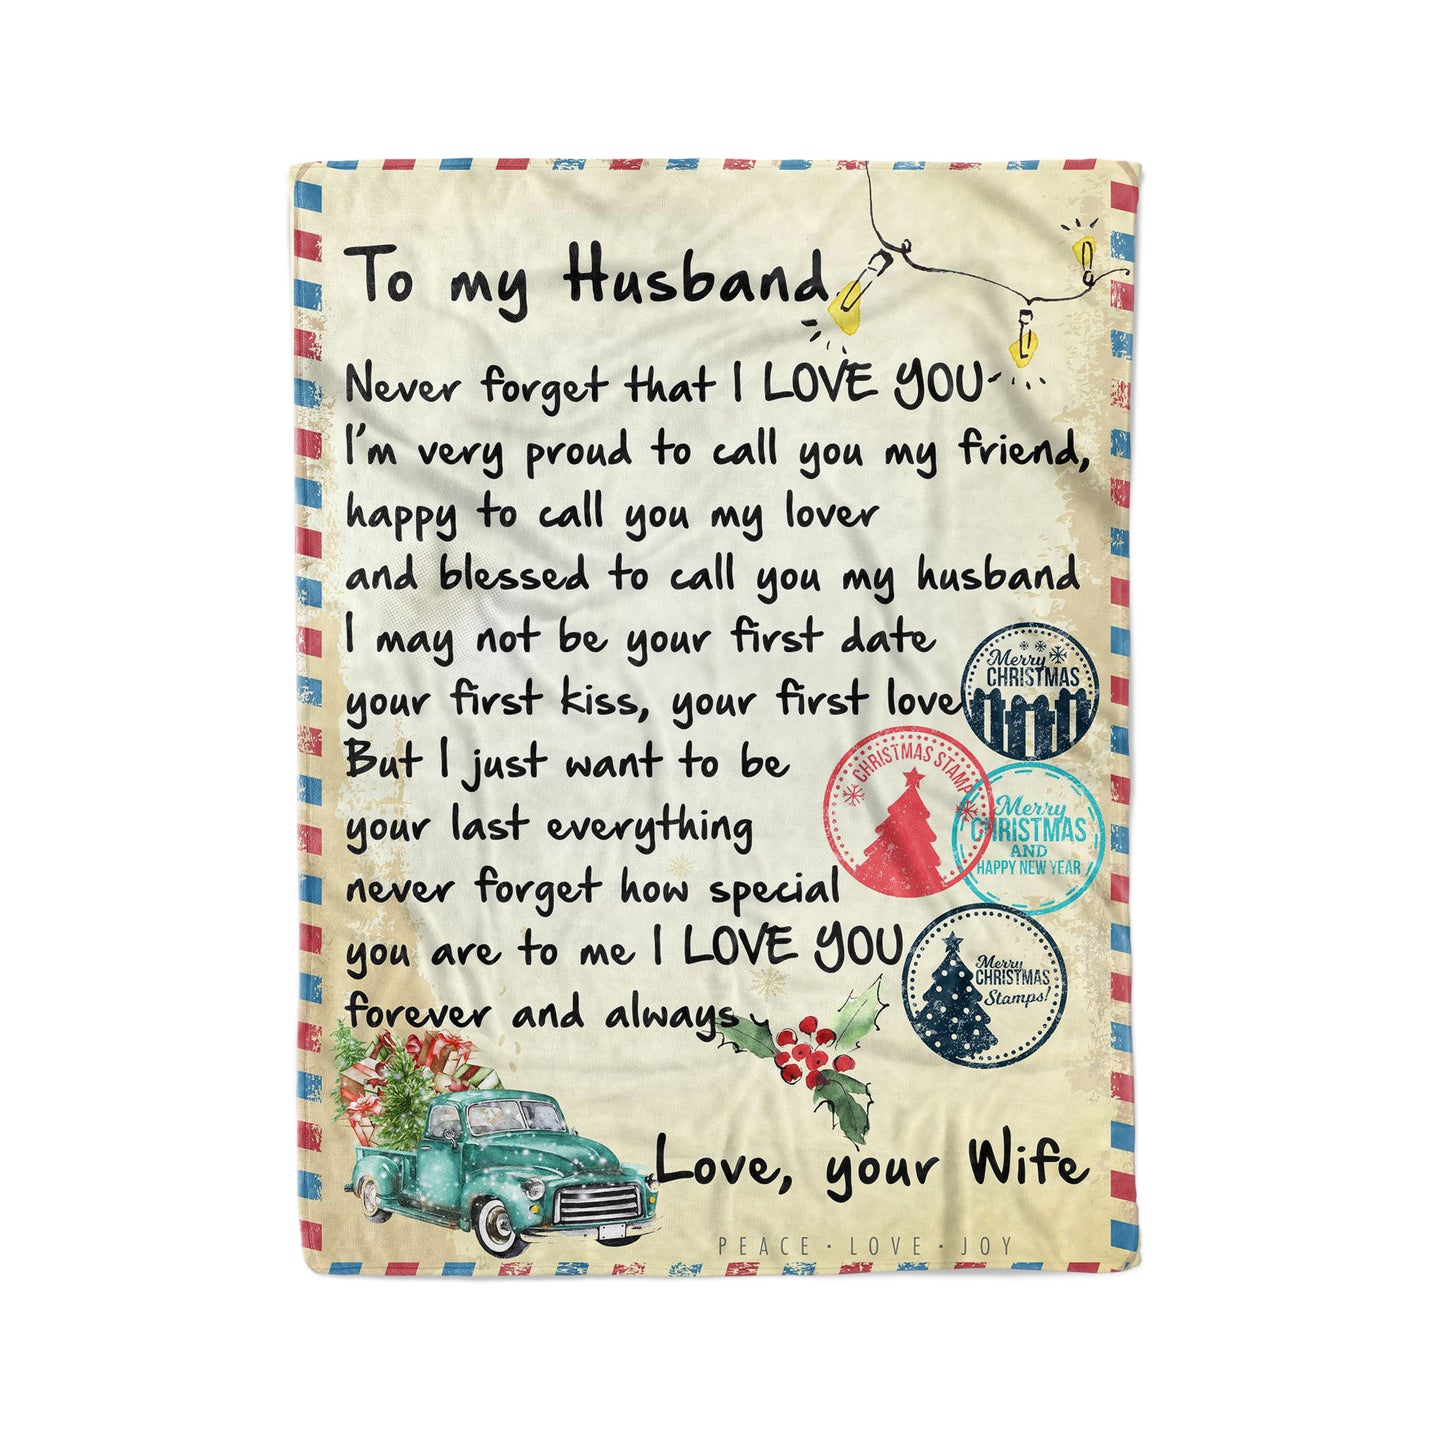 To my Husband
Never forget that I LOVE YOU
I'm very proud to call you my friend,
happy to call you my lover
and blessed to call you my husband
I may not be your first date
your first kiss, your first love
But I just want to be
your last everything
never forget how special
you are to me I LOVE YOU
forever and always
Merry
CHRISTMAS
CHRISTMAS STAMP
Merry
CHRISTMAS
AND
HAPPY NEW YEAR
Merry
CHRISTMAS
Stamps!
Love, your Wife
PEACE · LOVE · JOY